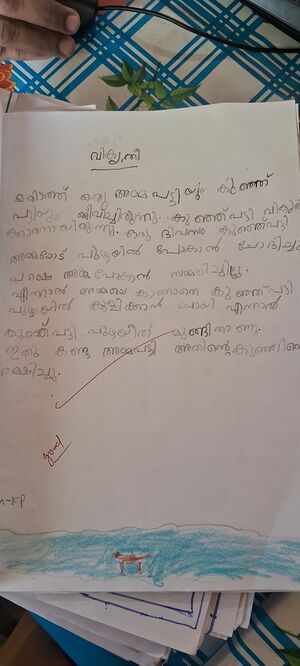 വികൃതി
ഒരിടത്ത് ഒരു അമ്മപട്ടിയും കുഞ്ഞ്
പട്ടിയും ജീവിച്ചിരുന്നു. കുഞ്ഞ്പട്ടി വികൃതി
ക്കാരനായിരുന്നു. ഒരു ദിവസം കുഞ്ഞ്പട്ടി
അമ്മയോട് പുഴയിൽ പോകാൻ ചോദിച്ചു
പക്ഷെ അമ്മപോകാൻ സമ്മതിച്ചില്ല.
എന്നാൽ അമ്മയെ കാണാതെ കുഞ്ഞ്പട്ടി
പുഴയിൽ കുളിക്കാൻ പോയി എന്നാൽ
കുഞ്ഞ്പട്ടി പുഴയിൽ മുങ്ങിതാണു.
ഇതു കണ്ട അമ്മപട്ടി അതിന്റെകുഞ്ഞിനെ
രക്ഷിച്ചു.
good